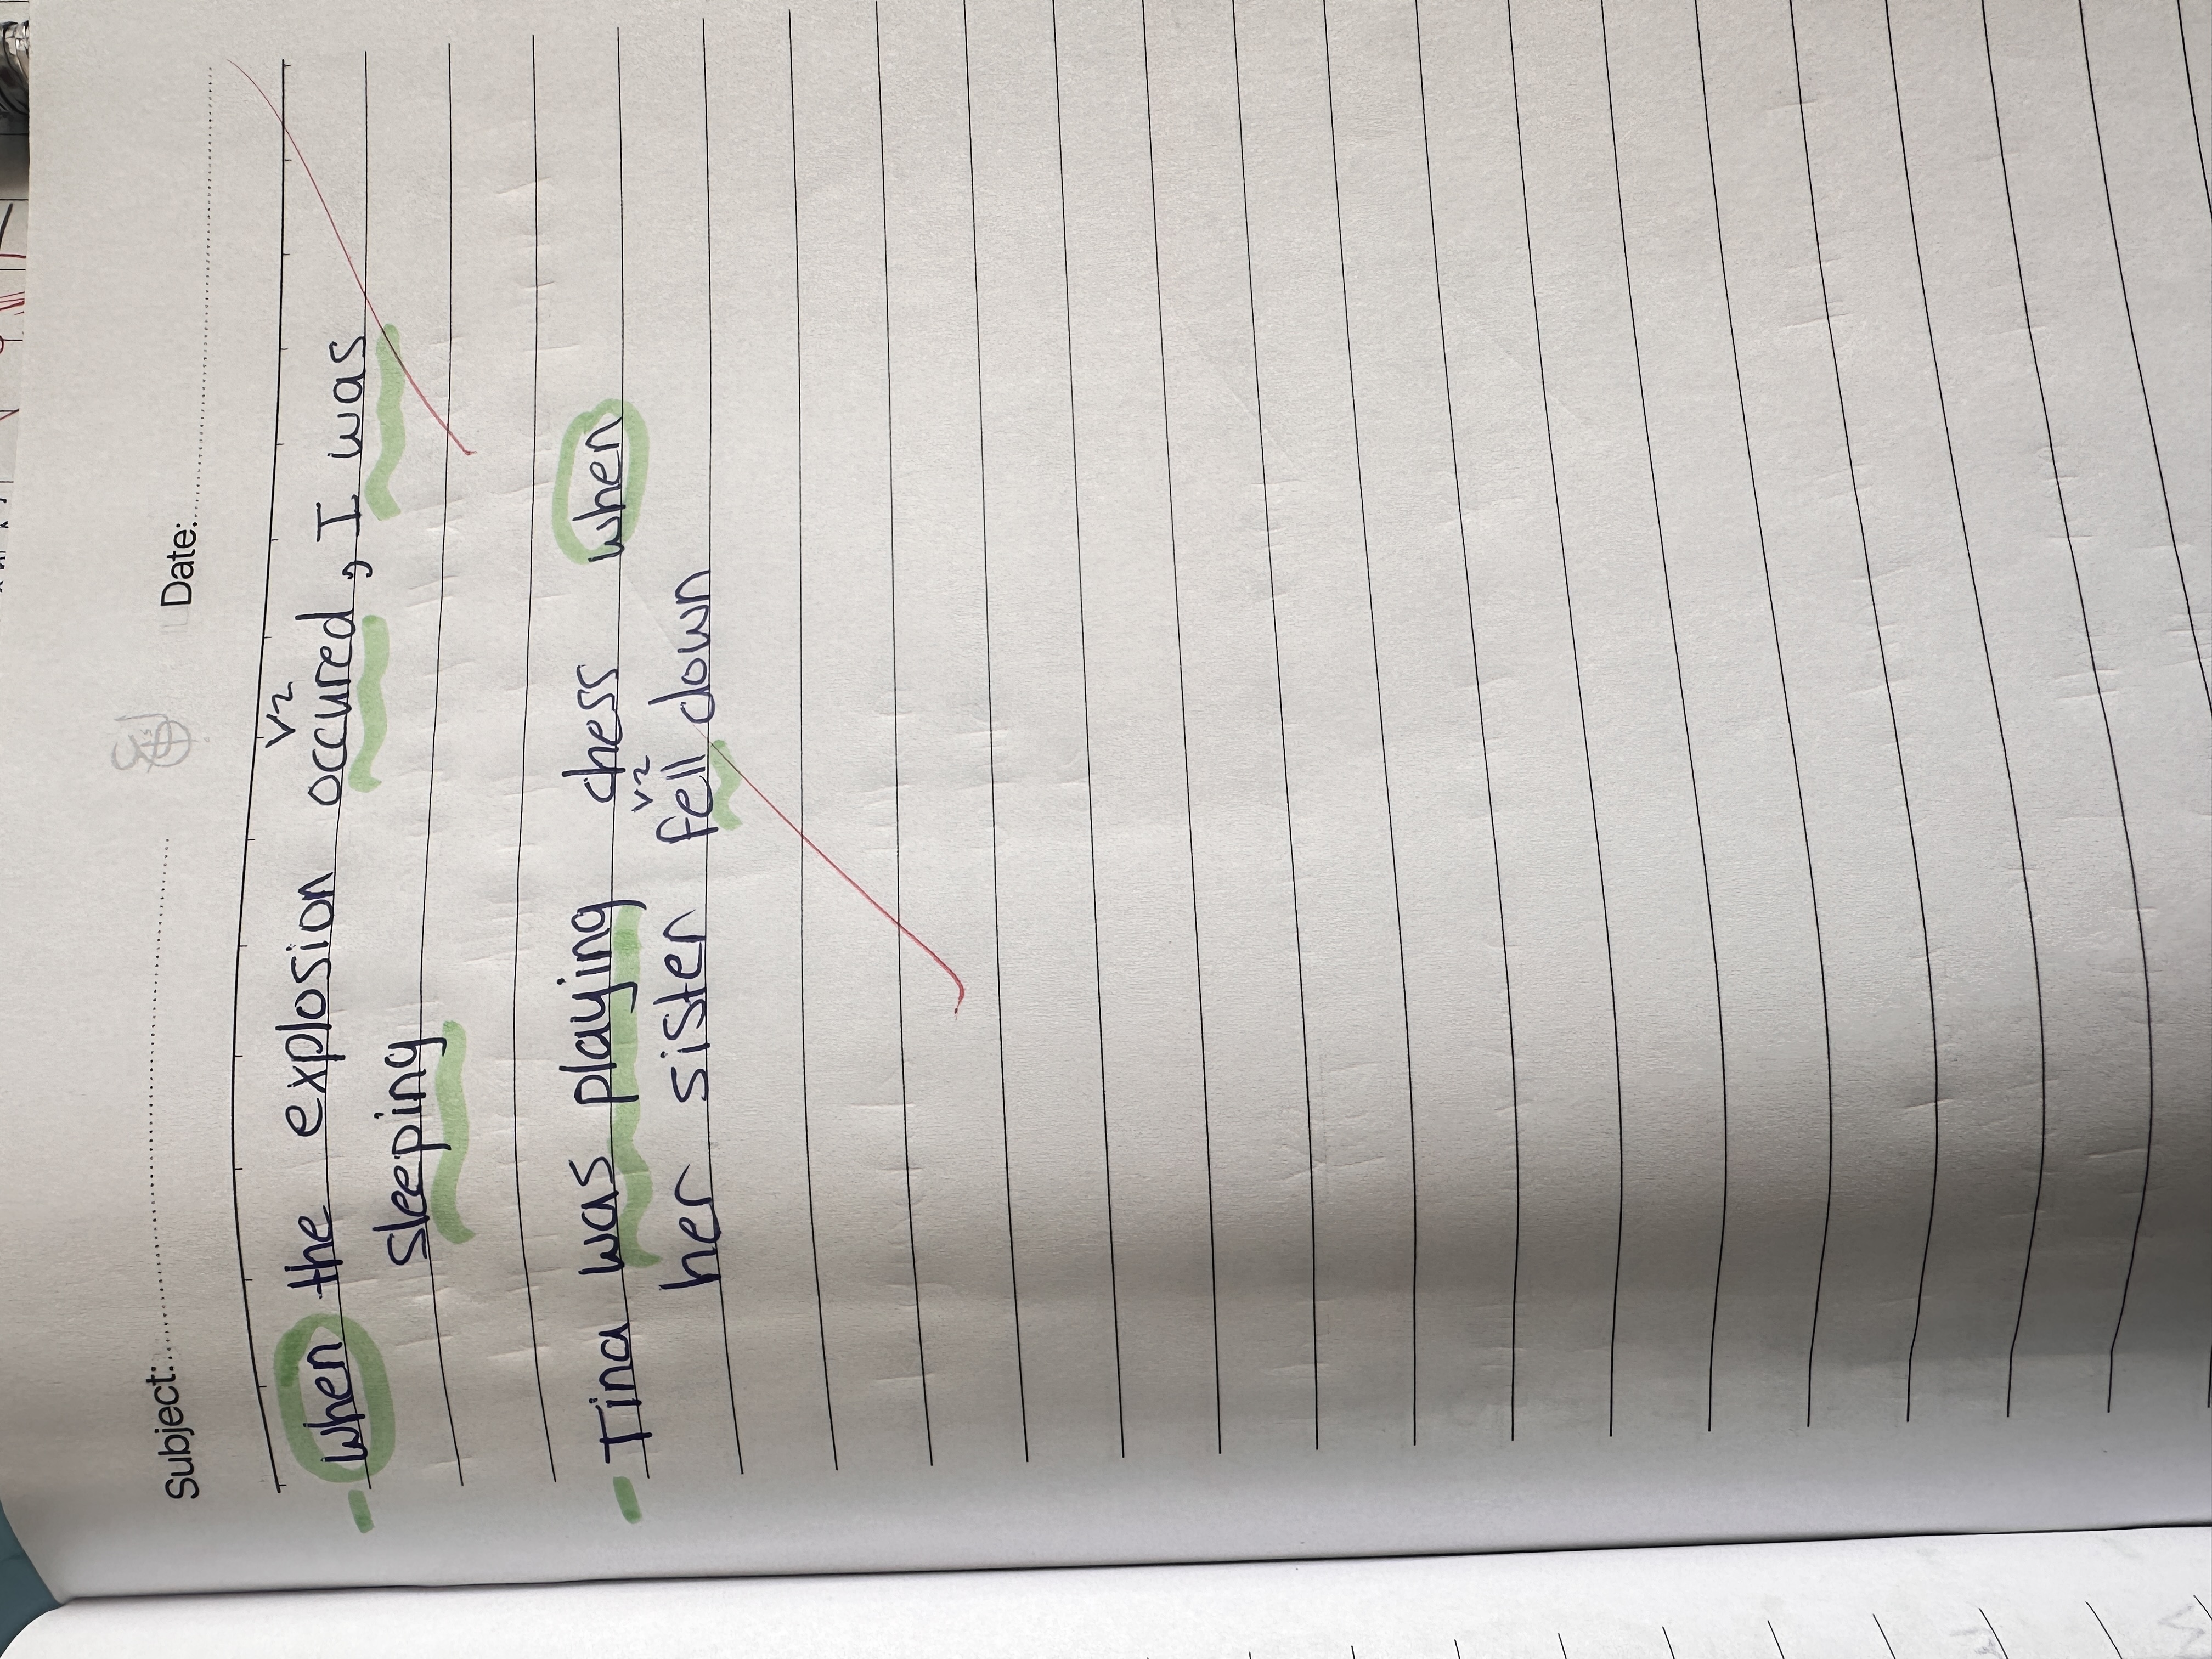 Subject: Date:
- when the explosion occured, I was
v2
sleeping
- Tina was playing chess when
v2
her sister fell down